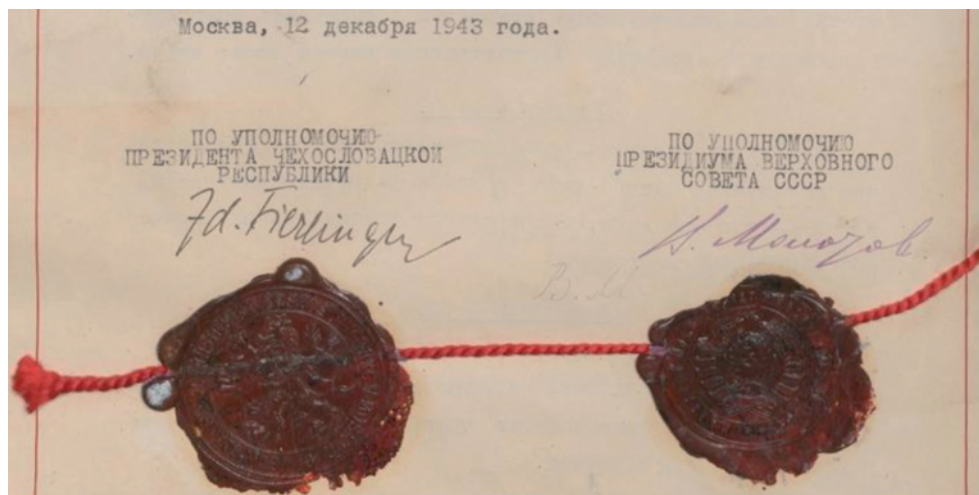 Москва, 12 декабря 1943 года.
ПО УПОЛНОМОЧИЮ
ПРЕЗИДЕНТА ЧЕХОСЛОВАЦКОЙ
РЕСПУБЛИКИ
ПО УПОЛНОМОЧИЮ
ПРЕЗИДИУМА ВЕРХОВНОГО
СОВЕТА СССР
Zd. Fierlinger
В. Молотов